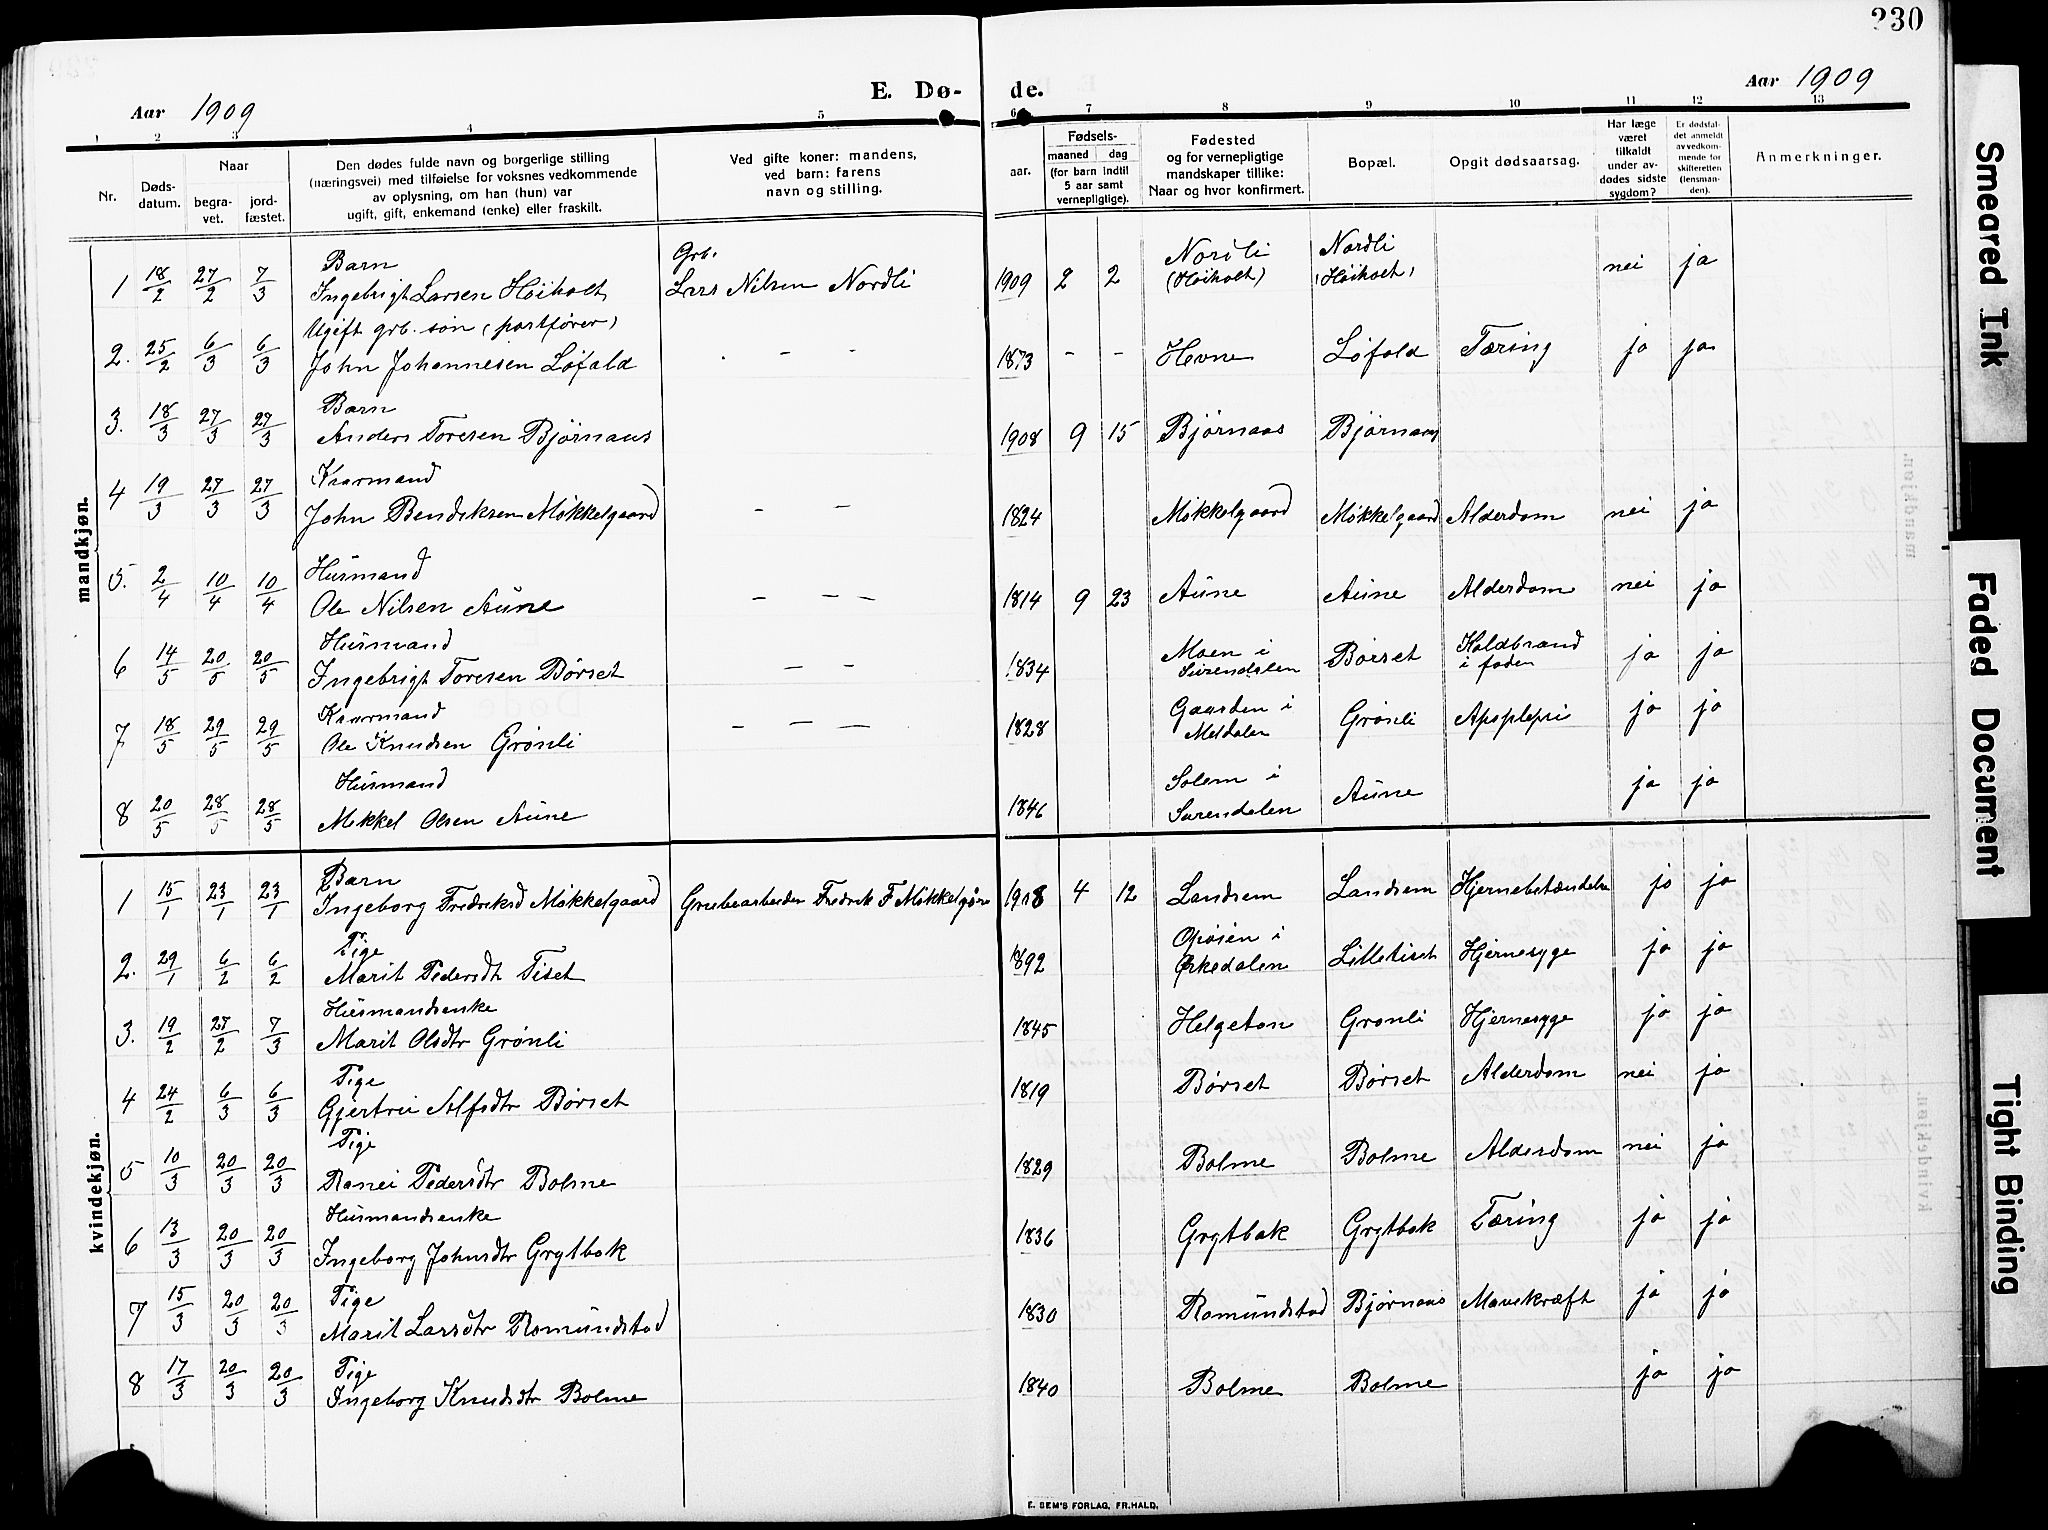 330
Aar 1909
E. Dø-
de.
Aar 1909
1 2 3 4 5 6 7 8 9 10 11 12 13
Nr.
Døds-
datum.
Naar
begra-
vet.
jord-
fæstet.
Den dødes fulde navn og borgerlige stilling
(næringsvei) med tilføielse for voksnes vedkommende
av oplysning, om han (hun) var
ugift, gift, enkemand (enke) eller fraskilt.
Ved gifte koner: mandens,
ved barn: farens
navn og stilling.
aar.
Fødsels-
maaned dag
(for barn indtil
5 aar samt
vernepligtige).
Fødested
og for vernepligtige
mandskaper tillike:
Naar og hvor konfirmert.
Bopæl.
Opgit dødsaarsag.
Har læge
været
tilkaldt
under av-
dødes sidste
sygdom?
Er dødsfal-
det anmeldt
av vedkom-
mende for
skifteretten
(lensman-
den).
Anmerkninger.
mandkjøn.
Barn Grb. Nordli Nordli
1 18/2 27/2 7/3 Ingebrigt Larsen Høiholt Lars Nilsen Nordli 1909 2 2 (Høiholt) (Høiholt) nei ja
Ugift grb. søn (postfører)
2. 25/2 6/3 6/3 John Johannesen Løfald - - 1873 - - Hevne Løfald Tæring ja ja
Barn
3. 18/3 27/3 27/3 Anders Toresen Bjørnaas 1908 9 15 Bjørnaas Bjørnaas
Kaarmand
4 19/3 27/3 27/3 John Bendiksen Møkkelgaard - - 1824 Møkkelgaard Møkkelgaard Alderdom nei ja
Husmand
5. 2/4 10/4 10/4 Ole Nilsen Aune - - - 1814 9 23 Aune Aune Alderdom nei ja
Husmand Moen i Koldbrand
6 14/5 20/5 20/5 Ingebrigt Toresen Børset - - 1834 Surendalen Børset i foden ja ja
Kaarmand Gaarden i
7 18/5 29/5 29/5 Ole Knudsen Grønli - - - 1828 Meldalen Grønli Apoplepsi ja ja
Husmand Solem i
8 20/5 28/5 28/5 Mikkel Olsen Aune 1846 Surendalen Aune ja ja
kvindekjøn.
Barn
1 15/1 23/1 23/1 Ingeborg Fredriksd Møkkelgaard Grubearbeider Fredrik F Møkkelgaard 1908 4 12 Landsem Landsem Hjernebetændelse ja ja
Pige i
2. 29/1 6/2 6/2 Marit Pedersdt Tiset 1892 Orkedalen Lilletiset Hjernesyge ja ja
Husmandsenke
3. 19/2 27/2 7/3 Marit Olsdtr Grønli 1845 Helgeton Grønli Hjernesyge ja ja
Pige
4 24/2 6/3 6/3 Gjertru Alfsdtr Børset 1819 Børset Børset Alderdom nei ja
Pige
5 10/3 20/3 20/3 Ranei Pedersdtr Bolme 1829 Bolme Bolme Alderdom nei ja
Husmandsenke
6 13/3 20/3 20/3 Ingeborg Johnsdtr Grytbak 1836 Grytbak Grytbak Tæring ja ja
Pige
7 15/3 20/3 20/3 Marit Larsdtr Romundstad 1830 Romundstad Bjørnaas Mavekræft ja ja
Pige
8 17/3 20/3 20/3 Ingeborg Knudsdtr Bolme 1840 Bolme Bolme ja ja
E. SEM'S FORLAG, FR.HALD.
Smeared Ink
Faded Document
Tight Binding